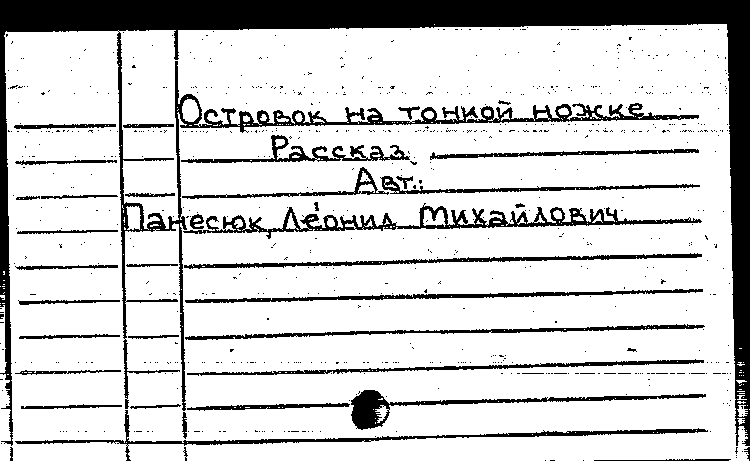 Островок на тонкой ножке.
Рассказ.
Авт.:
Панесюк, Леонид Михайлович.